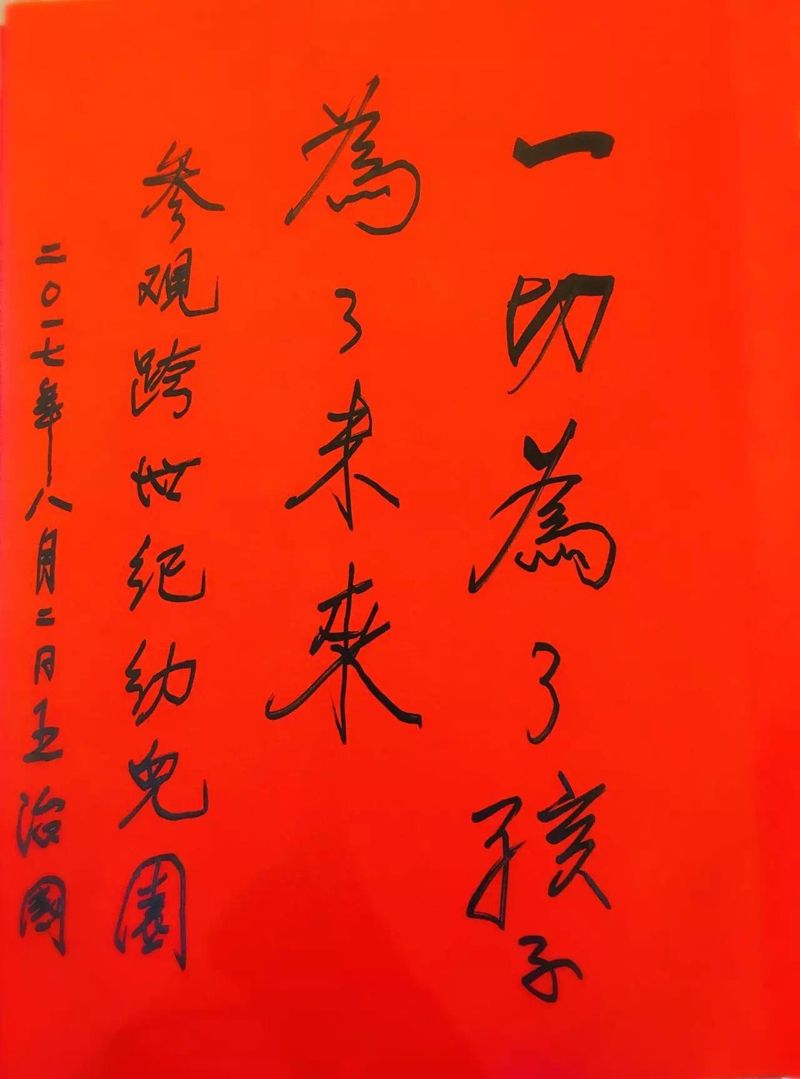 一切為了孩子
為了未來
参观跨世纪幼兒園
二〇一七年八月二日王治國